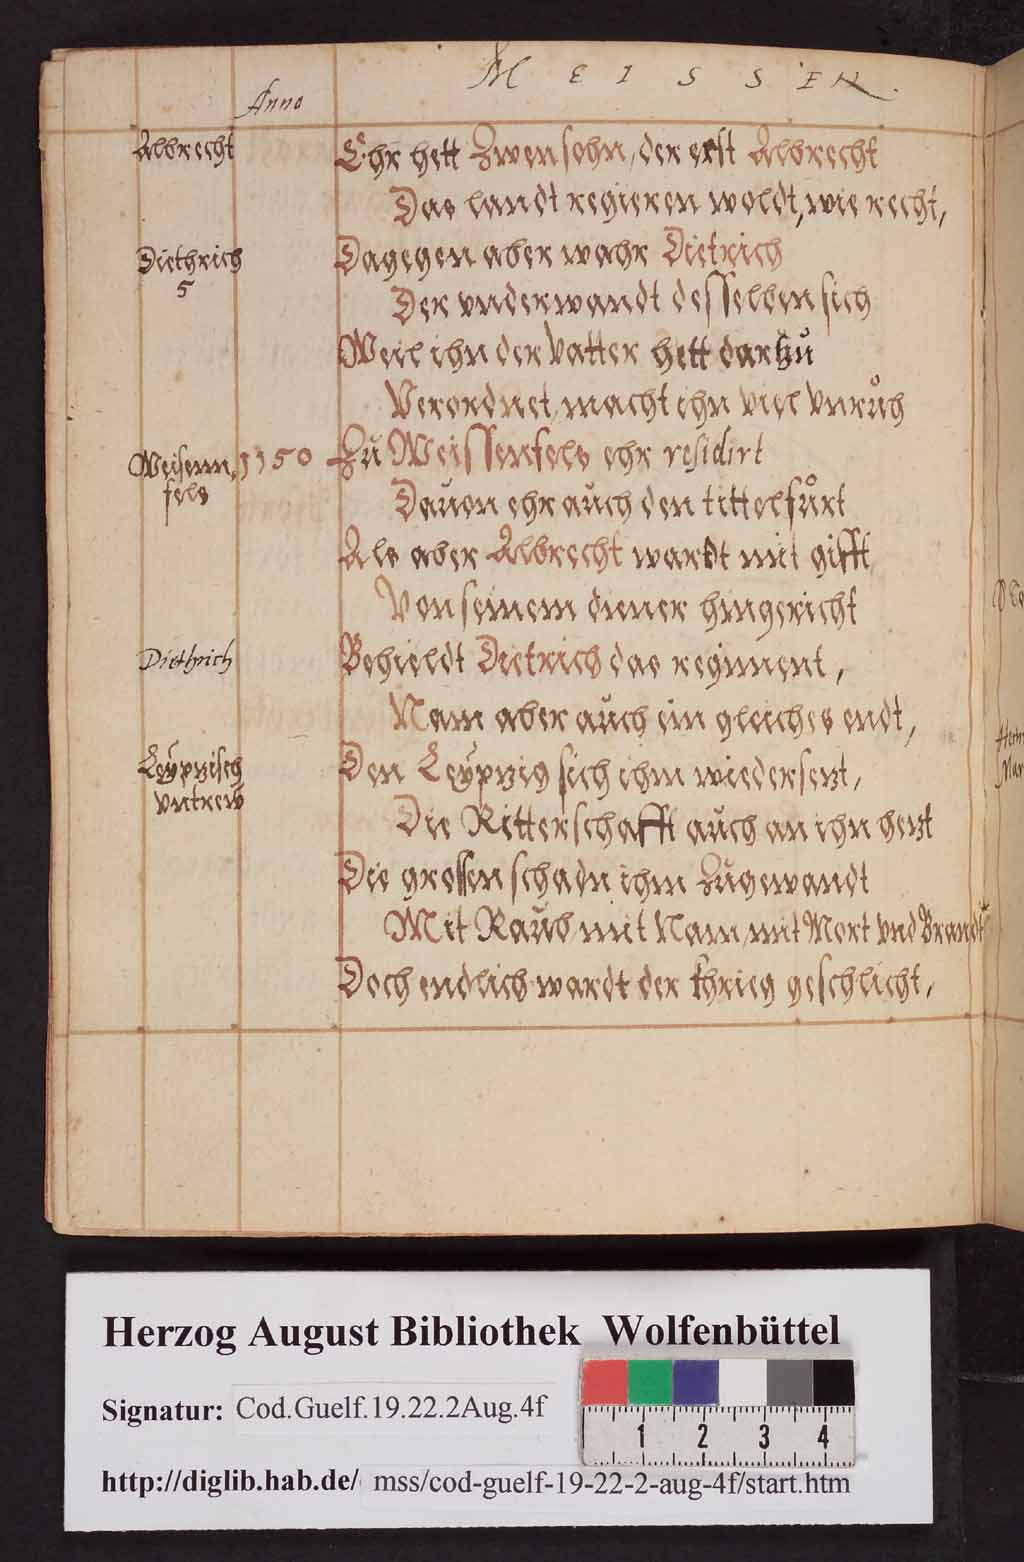 MEISSEN.
Anno
Albrecht
Ehr hett Zwen sohn, der erst Albrecht
Das landt regieren woldt, wie recht,
Diethrich
5
Dagegen aber wahr Dietrich
Der vnderwandt desselben sich
Weil ihn der Vatter hett dartzů
Verordnet, macht ihn viel vnrůh
Weisenn,
fels
1150
Zu Weissenfels ehr residirt
Dauon ehr auch den tittel fůrt
Als aber Albrecht wardt mit gifft
Von seinem diener hingericht
Diethrich
Behieldt Dietrich das regiment,
Nam aber auch ein gleiches endt,
Leypzisch
vntrew
Den Leypzig sich ihm wiedersezt,
Die Ritterschafft auch an ihn hezt
Die grossen schadn ihm zugewandt
Mit Raub, mit Nam, mit Mort vnd Brandt
Doch endlich wardt der khrieg geschlicht,
Herzog August Bibliothek Wolfenbüttel
Signatur: Cod.Guelf.19.22.2Aug.4f
1 2 3 4
http://diglib.hab.de/ mss/cod-guelf-19-22-2-aug-4f/start.htm